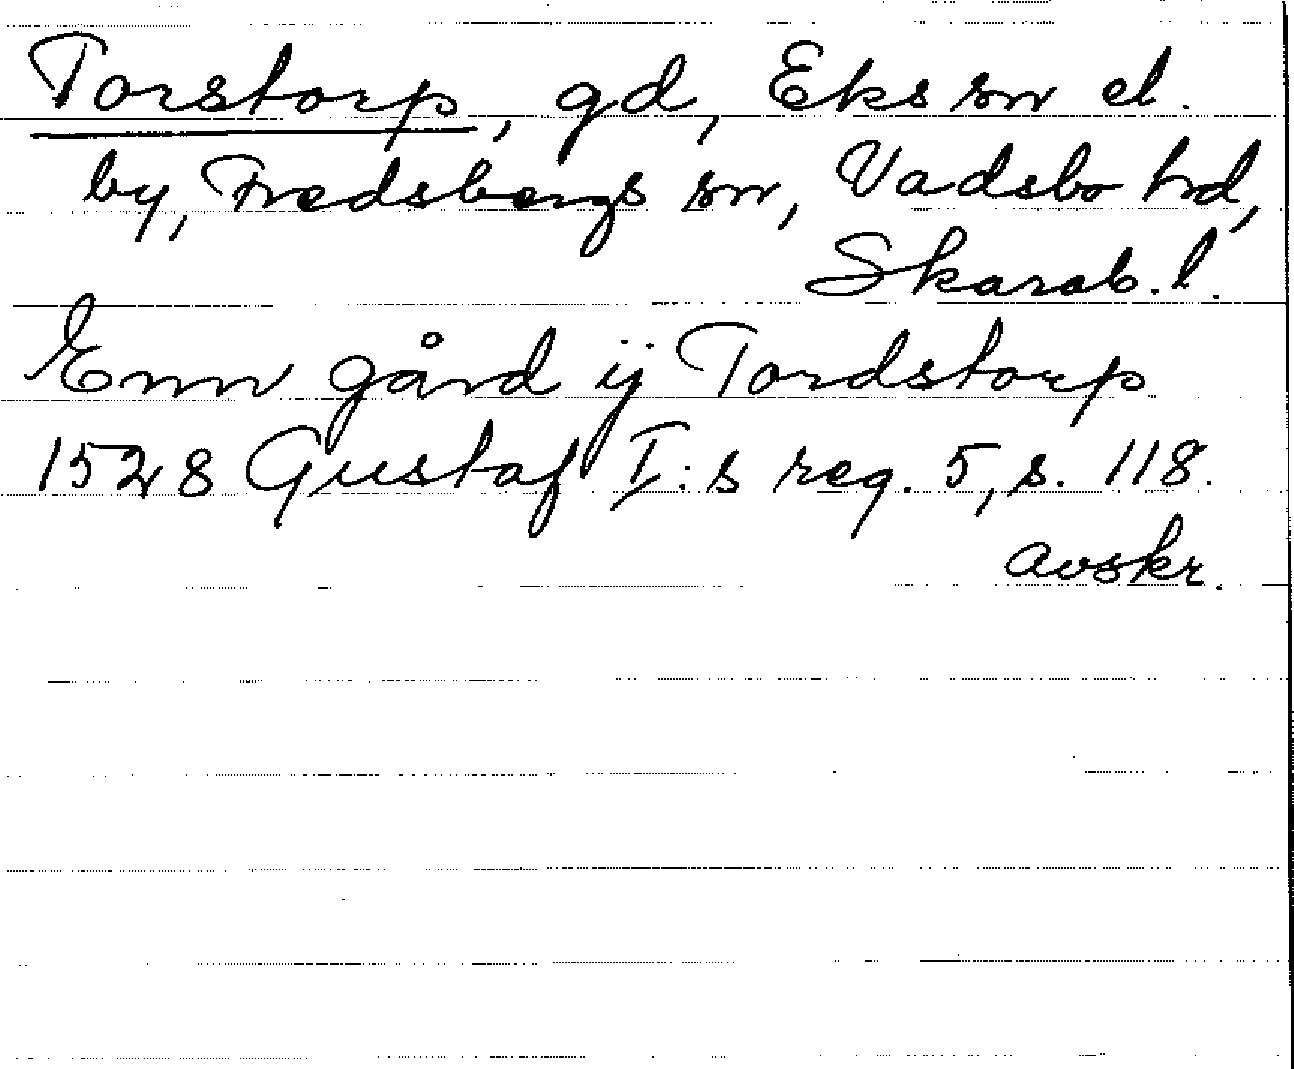 Torstorp, gd, Eks sn el.
by, Fredsbergs sn, Vadsbo hd,
Skarab. l.
Enn gård ij Tordstorp
1528 Gustaf I:s reg. 5, s. 118.
avskr.